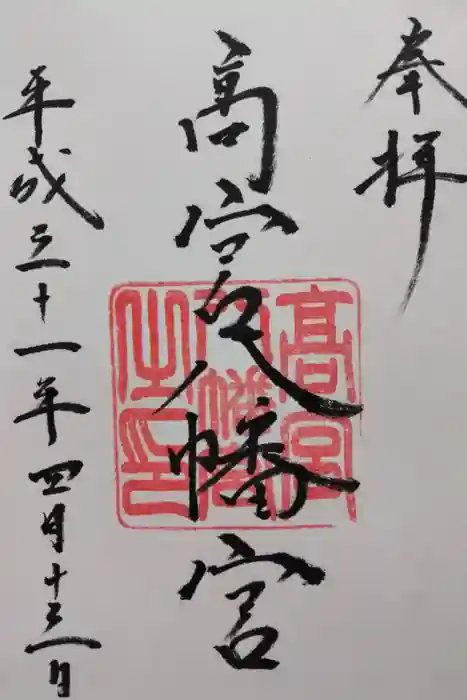 奉拝
高宮八幡宮
高宮八幡宮之印
平成三十一年四月十三日